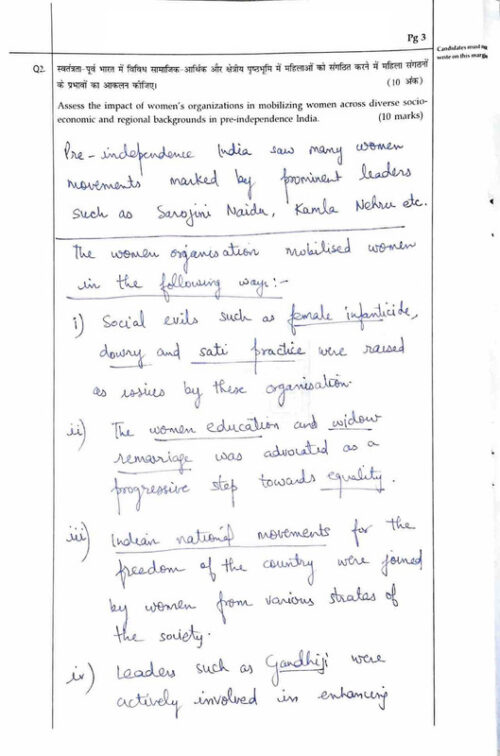 Pg 3
Candidates must no
write on this margi
Q2. स्वतंत्रता-पूर्व भारत में विविध सामाजिक-आर्थिक और क्षेत्रीय पृष्ठभूमि में महिलाओं को संगठित करने में महिला संगठनों
के प्रभावों का आकलन कीजिए। (10 अंक)
Assess the impact of women's organizations in mobilizing women across diverse socio-
economic and regional backgrounds in pre-independence India. (10 marks)
Pre-independence India saw many women
movements marked by prominent leaders
such as Sarojini Naidu, Kamla Nehru etc.
The women organisation mobilised women
in the following ways:-
i) Social evils such as female infanticide,
dowry and sati practice were raised
as issues by these organisation.
ii) The women education and widow
remarriage was advocated as a
progressive step towards equality.
iii) Indian national movements for the
freedom of the country were joined
by women from various stratas of
the society.
iv) Leaders such as Gandhiji were
actively involved in enhancing